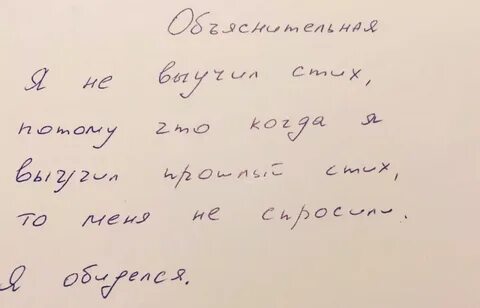 Объяснительная
Я не выучил стих,
потому что когда я
выучил прошлый стих,
то меня не спросили.
Я обиделся.